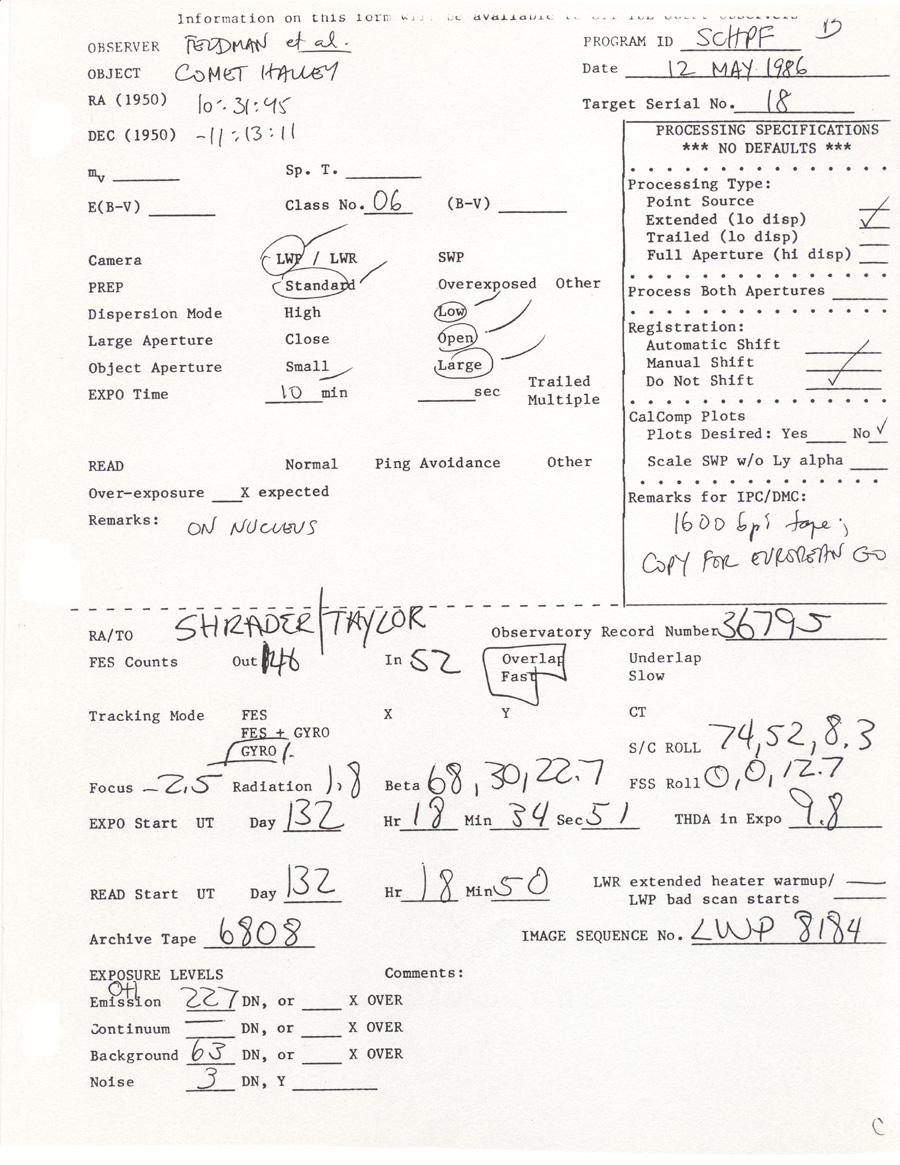 Information on this form will be available to all
OBSERVER FELDMAN et al.
PROGRAM ID SCHPF
OBJECT COMET HALLEY
Date 12 MAY 1986
RA (1950) 10:31:45
Target Serial No. 18
DEC (1950) -11:13:11
PROCESSING SPECIFICATIONS
*** NO DEFAULTS ***
mv ______ Sp. T. ______
E(B-V) ______ Class No. 06 (B-V) ______
Processing Type:
Point Source
Extended (lo disp) ✓
Trailed (lo disp)
Full Aperture (hi disp)
Process Both Apertures
Registration:
Automatic Shift
Manual Shift
Do Not Shift ✓
CalComp Plots
Plots Desired: Yes___ No ✓
Scale SWP w/o Ly alpha
Remarks for IPC/DMC:
1600 bpi tape;
COPY FOR EUROPEAN GO
Camera LWP / LWR SWP
PREP Standard Overexposed Other
Dispersion Mode High Low
Large Aperture Close Open
Object Aperture Small Large
EXPO Time 10 min ____sec Trailed
Multiple
READ Normal Ping Avoidance Other
Over-exposure ___X expected
Remarks: ON NUCLEUS
RA/TO SHRADER/TAYLOR
Observatory Record Number 36795
FES Counts Out 146 In 52 Overlap Underlap
Fast Slow
Tracking Mode FES X Y CT
FES + GYRO
GYRO
S/C ROLL 74,52,8.3
Focus -2.5 Radiation 1.8 Beta 68,30,22.7 FSS Roll 0,0,12.7
EXPO Start UT Day 132 Hr 18 Min 34 Sec 51 THDA in Expo 9.8
READ Start UT Day 132 Hr 18 Min 50
LWR extended heater warmup/
LWP bad scan starts
Archive Tape 6808 IMAGE SEQUENCE No. LWP 8184
EXPOSURE LEVELS Comments:
OH
Emission 227 DN, or ____ X OVER
Continuum — DN, or ____ X OVER
Background 63 DN, or ____ X OVER
Noise 3 DN, Y ______
C